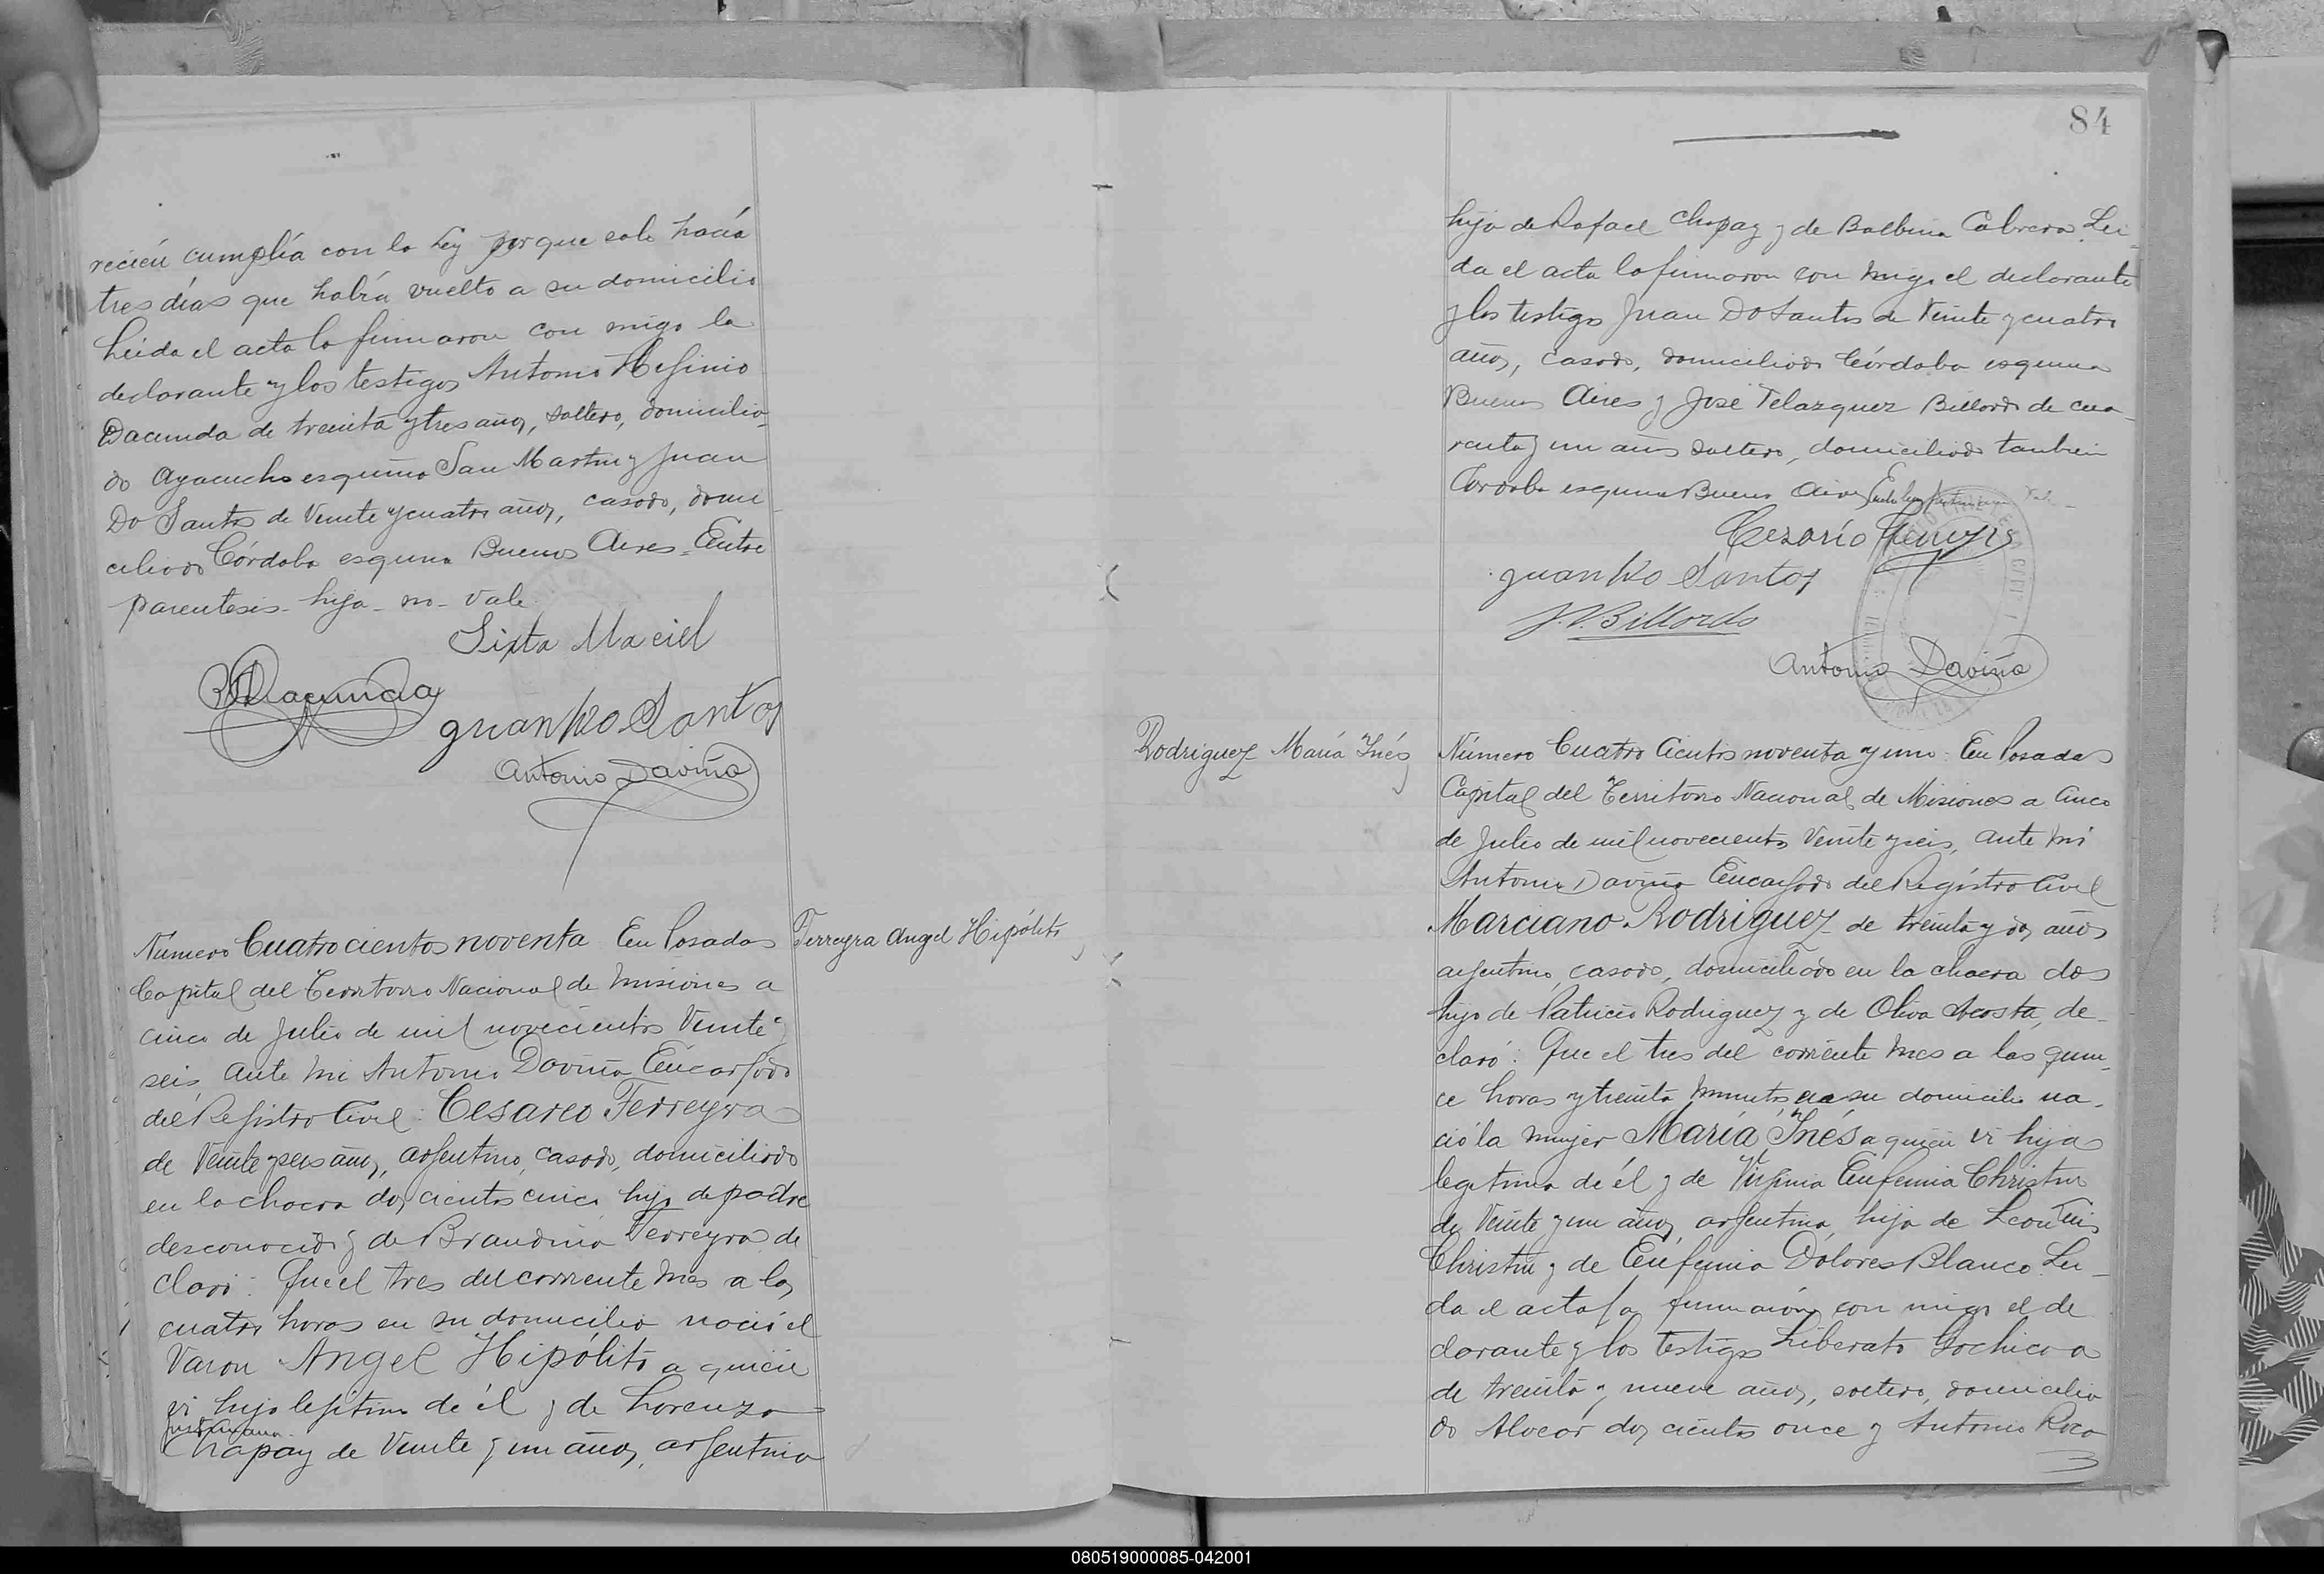 recién cumplía con la Ley porque solo hacía
tres días que había vuelto a su domicilio
Leida el acta la firmaron con migo la
declarante y los testigos Antonio Higinio
Dacunda de treinta y tres años, soltero, domicilia-
do Ayacucho esquina San Martin y Juan
Do Santos de veinte y cuatro años, casado, domi
ciliado Córdoba esquina Buenos Aires - Entre
parentesis - hija - no - vale
Sixta Maciel
Dacunda
Juan Do Santos
Antonio Daviña
Ferreyra Angel Hipólito
Número Cuatrocientos noventa En Posadas
Capital del Territorio Nacional de Misiones a
cinco de Julio de mil novecientos Veinte y
seis, ante mi Antonio Daviña Encargado
del Registro Civil: Cesareo Ferreyra
de Veinte y seis años, argentino, casado, domiciliado
en la chacra dos cientos cinco hijo de padre
desconocido y de Brandina Ferreyra de
claró: Que el tres del corriente mes a las
cuatro horas en su domicilio nació el
Varon Angel Hipólito a quien
vi hijo legitimo de él y de Lorenza
Justiniana
Chapay de Veinte y un años, argentina
84
hija de Rafael Chapay y de Balbina Cabrera Lei-
da el acta la firmaron con migo el declarante
y los testigos Juan Do Santos de Veinte y cuatro
años, casado, domiciliado Córdoba esquina
Buenos Aires y José Velazquez Billordo de cua-
renta y un años soltero, domiciliado tambien
Cordoba esquina Buenos Aires Vale
Cesario Ferreyra
Juan Do Santos
J. V. Billordo
Antonio Daviña
Rodriguez María Inés
Número Cuatro Cientos noventa y uno: En Posadas
Capital del Territorio Nacional de Misiones a Cinco
de Julio de mil novecientos Veinte y seis, ante mi
Antonio Daviña Encargado del Registro Civil
Marciano Rodriguez de treinta y dos años
argentino, casado, domiciliado en la chacra dos
hijo de Patricio Rodriguez y de Oliva Acosta, de-
claró: Que el tres del corriente mes a las quin-
ce horas y treinta minutos en su domicilio na-
ció la mujer María Inés a quien vi hija
legitima de él y de Virginia Eufemia Christin
de Veinte y un años, argentina, hija de Leontin
Christin y de Eufemia Dolores Blanco. Lei-
da el acta la firmaron con migo el de
clarante y los testigos Liberato Gochicoa
de treinta y nueve años, soltero, domicilia
do Alvear dos cientos once y Antonio Roca
080519000085-042001